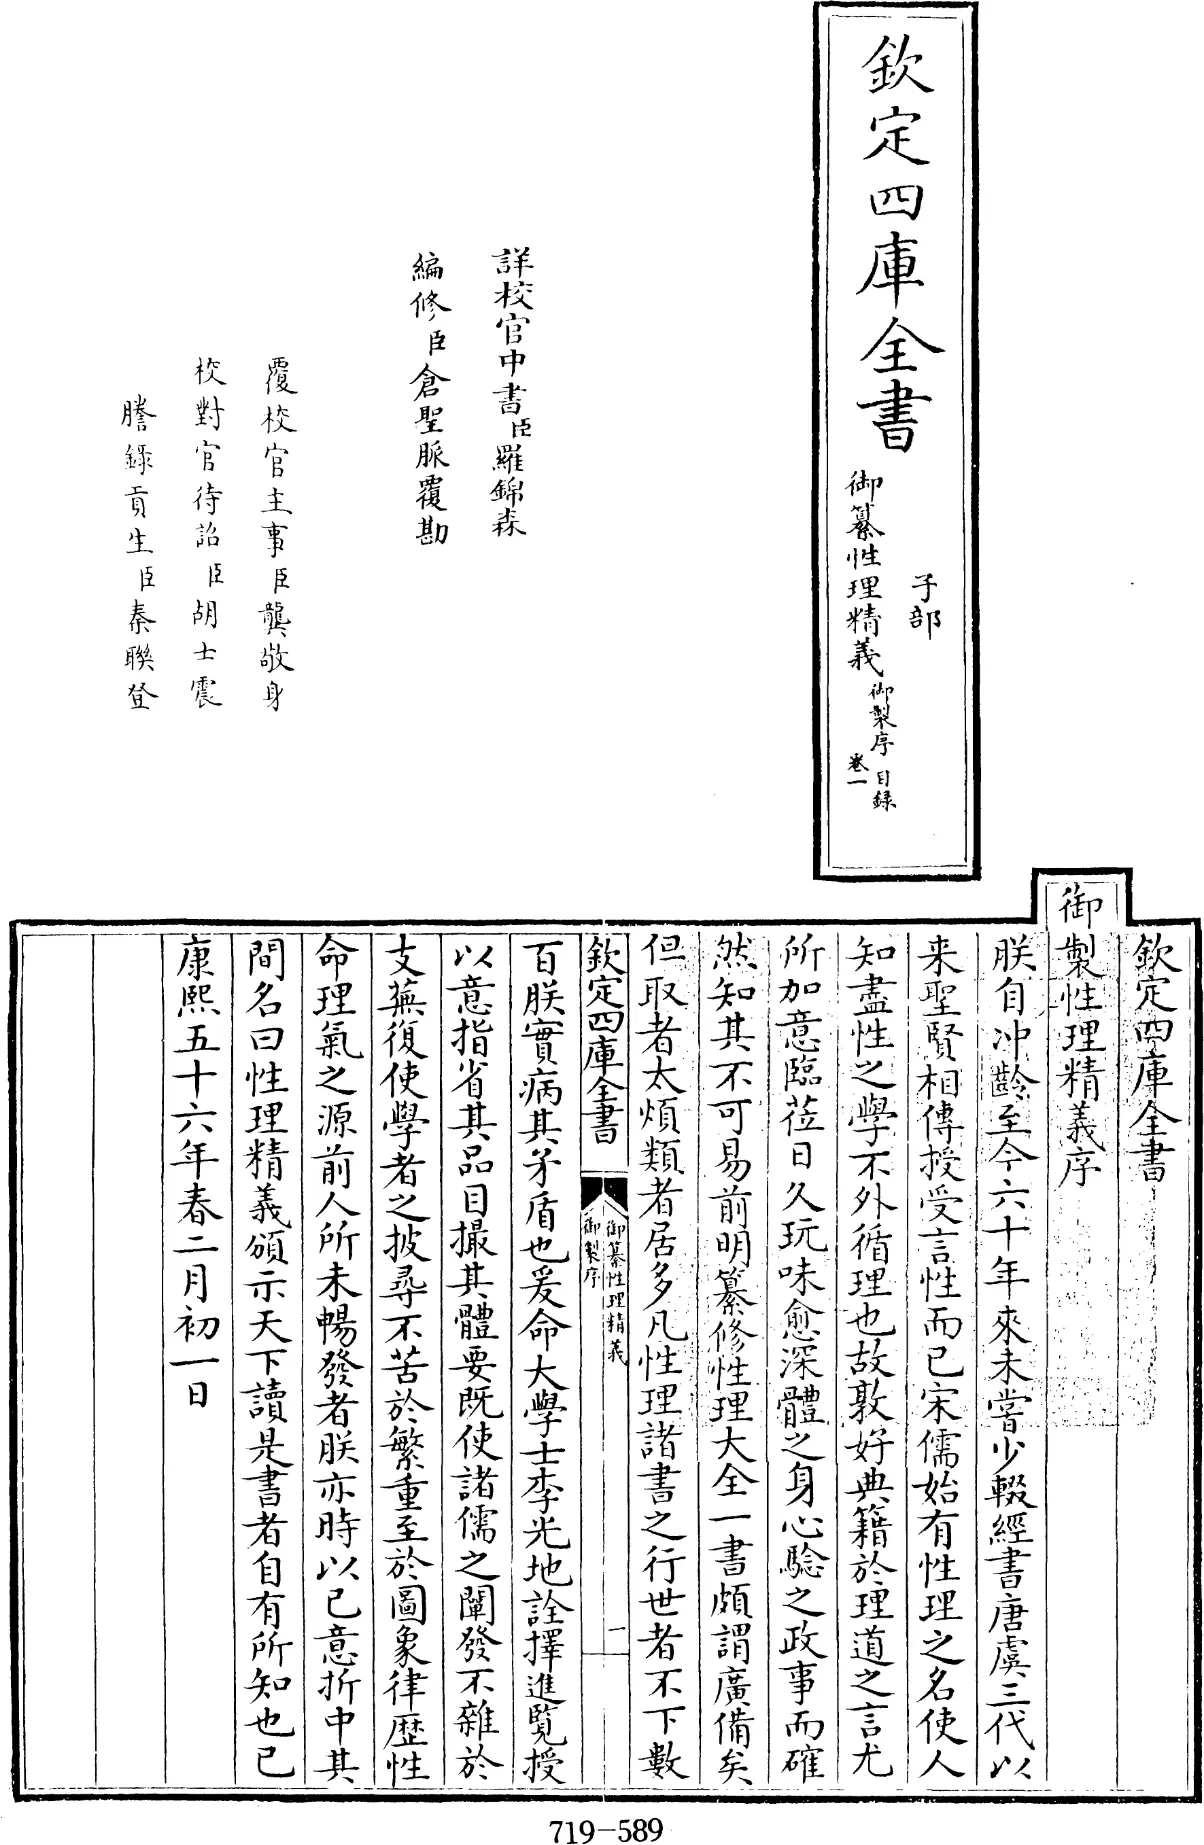 欽定四庫全書
子部
御纂性理精義
御製序 目録
卷一
詳校官中書臣羅錦森
編修臣倉聖脈覆勘
覆校官主事臣龔敬身
校對官待詔臣胡士震
謄錄貢生臣秦聯登
欽定四庫全書
御製性理精義序
朕自沖齡至今六十年來未嘗少輟經書唐虞三代以
来聖賢相傳授受言性而已宋儒始有性理之名使人
知盡性之學不外循理也故敦好典籍於理道之言尤
所加意臨莅日久玩味愈深體之身心驗之政事而確
然知其不可易前明纂修性理大全一書頗謂廣備矣
但取者太煩類者居多凡性理諸書之行世者不下數
欽定四庫全書
御纂性理精義
御製序
一
百朕實病其矛盾也爰命大學士李光地詮擇進覽授
以意指省其品目撮其體要既使諸儒之闡發不雜於
支蕪復使學者之披尋不苦於繁重至於圖象律歷性
命理氣之源前人所未暢發者朕亦時以己意折中其
間名曰性理精義頒示天下讀是書者自有所知也已
康熙五十六年春二月初一日
719-589